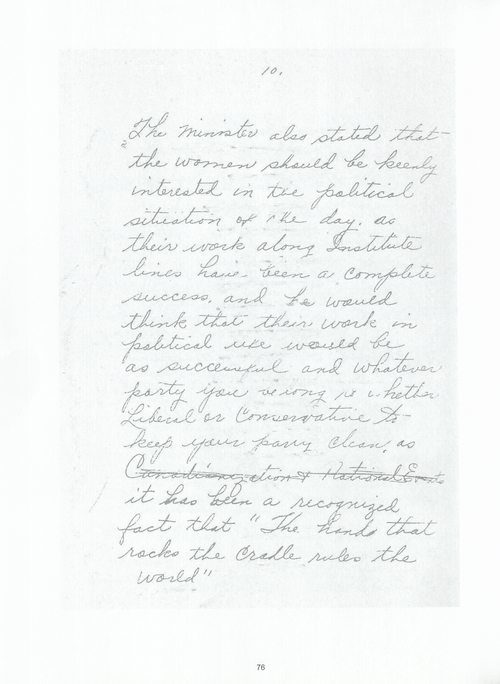 10.
The Minister also stated that
the women should be keenly
interested in the political
situation of the day, as
their work along Institute
lines have been a complete
success, and he would
think that their work in
political life would be
as successful and whatever
party you belong to whether
Liberal or Conservative to
keep your party clean, as
Canadianization & National Events
it has been a recognized
fact that "The hands that
rocks the Cradle rules the
world"
76